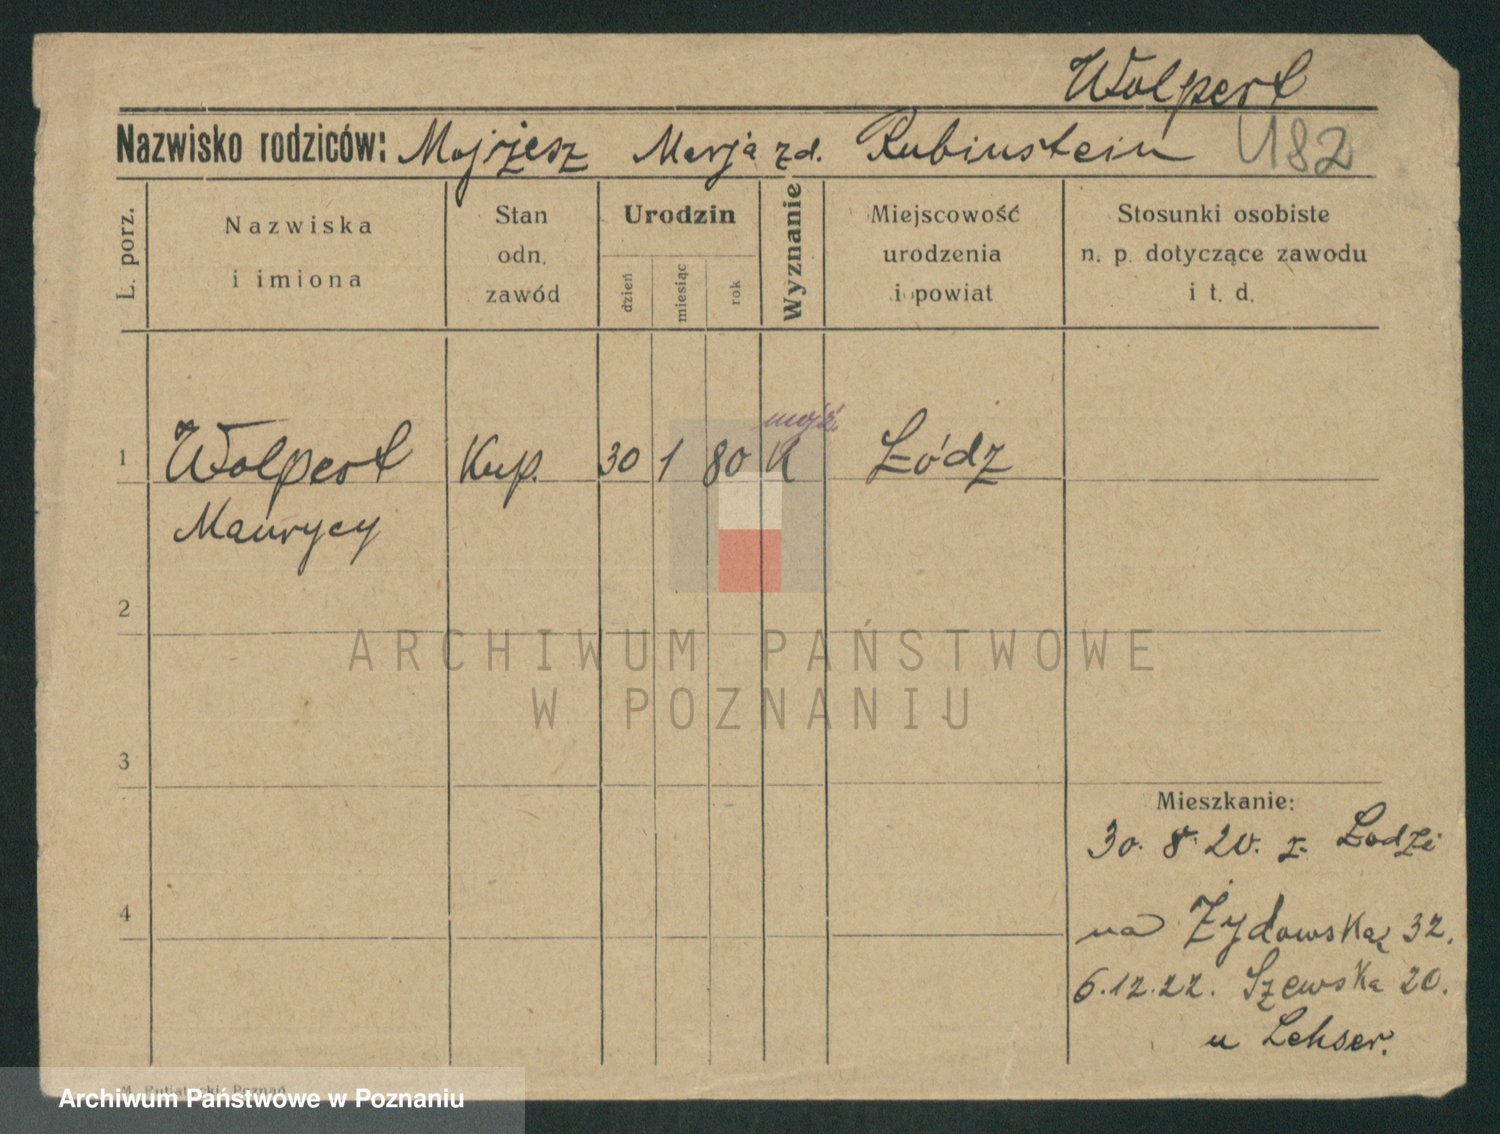 Wolpert
Nazwisko rodziców: Mojżesz Marja zd. Rubinstein U82
L. porz.
Nazwiska
i imiona
Stan
odn.
zawód
Urodzin
dzień
miesiąc
rok
Wyznanie
Miejscowość
urodzenia
i powiat
Stosunki osobiste
n. p. dotyczące zawodu
i t. d.
mojż.
1 Wolpert Kup. 30 1 80 K Łódz
Maurycy
2
ARCHIWUM PAŃSTWOWE
W POZNANIU
3
Mieszkanie:
30. 8. 20. z Łodzi
4
na Żydowską 32.
6.12.22. Szewska 20.
u Lehser.
Poznań
Archiwum Państwowe w Poznaniu